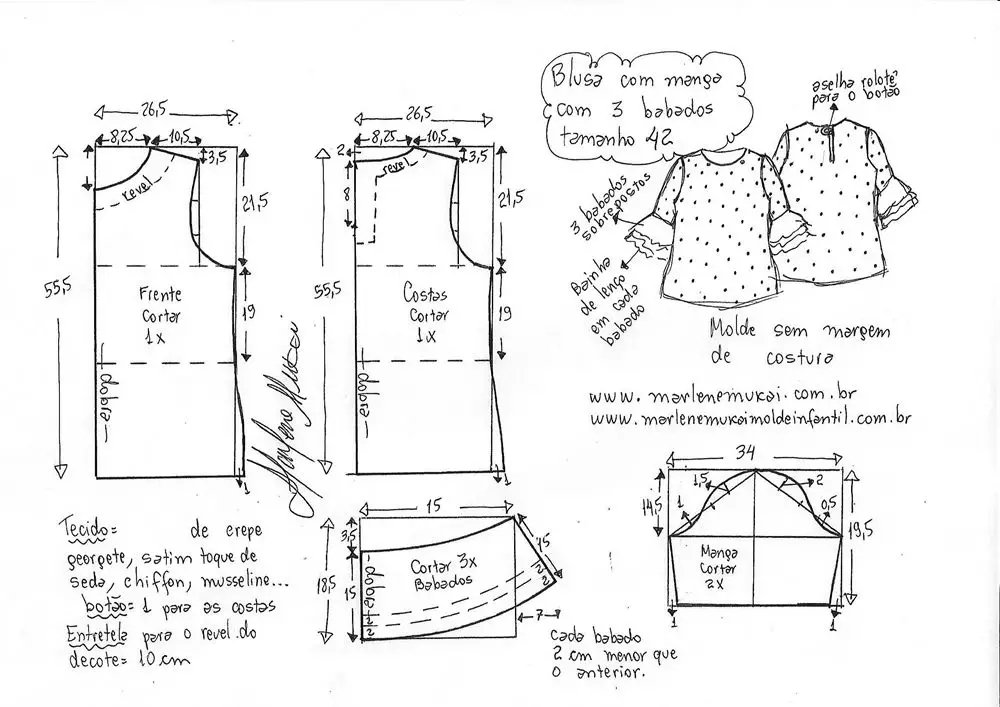 Blusa com manga
com 3 babados
tamanho 42
aselha rolotê
para o botão
3 babados
sobrepostos
Bainha
de lenço
em cada
babado
Molde sem margem
de costura
www.marlenemukai.com.br
www.marlenemukaimoldeinfantil.com.br
26,5
8,25
10,5
3,5
revel
21,5
55,5
19
Frente
Cortar
1x
dobra
1
Marlene Mukai
26,5
8,25
10,5
2
3,5
revel
8
21,5
55,5
19
Costas
Cortar
1x
dobra
1
Tecido= de crepe
georgete, satim toque de
seda, chiffon, musseline...
botão= 1 para as costas
Entretela para o revel do
decote= 10 cm
15
3,5
18,5
15
15
Cortar 3x
Babados
dobra
2
2
2
2
7
Cada babado
2 cm menor que
o anterior.
34
1,5
2
14,5
1
0,5
19,5
Manga
Cortar
2x
1
1